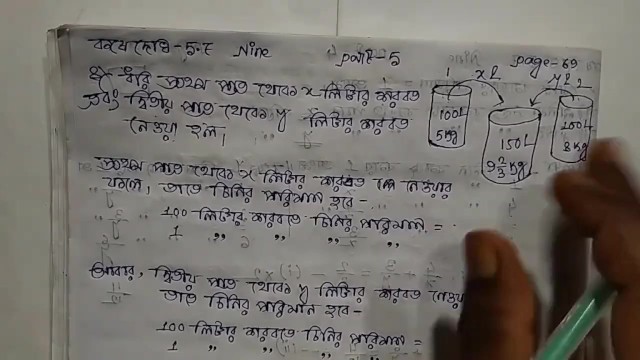 কষে দেখি-5.২ Nine part-5 page-89
ধরি প্রথম পাত্র থেকে x লিটার শরবত
এবং দ্বিতীয় পাত্র থেকে y লিটার শরবত
নেওয়া হল।
1 x L y L 2
100L 5Kg
150L 9 2/3 Kg
100L 8 Kg
প্রথম পাত্র থেকে x লিটার শরবত নেওয়ার
ফলে, তাতে চিনির পরিমান হবে-
100 লিটার শরবতে চিনির পরিমান =
1 " " " "
আবার, দ্বিতীয় পাত্র থেকে y লিটার শরবত নেওয়া
তাতে চিনির পরিমান হবে-
100 লিটার শরবতে চিনির পরিমান =
1 " " "